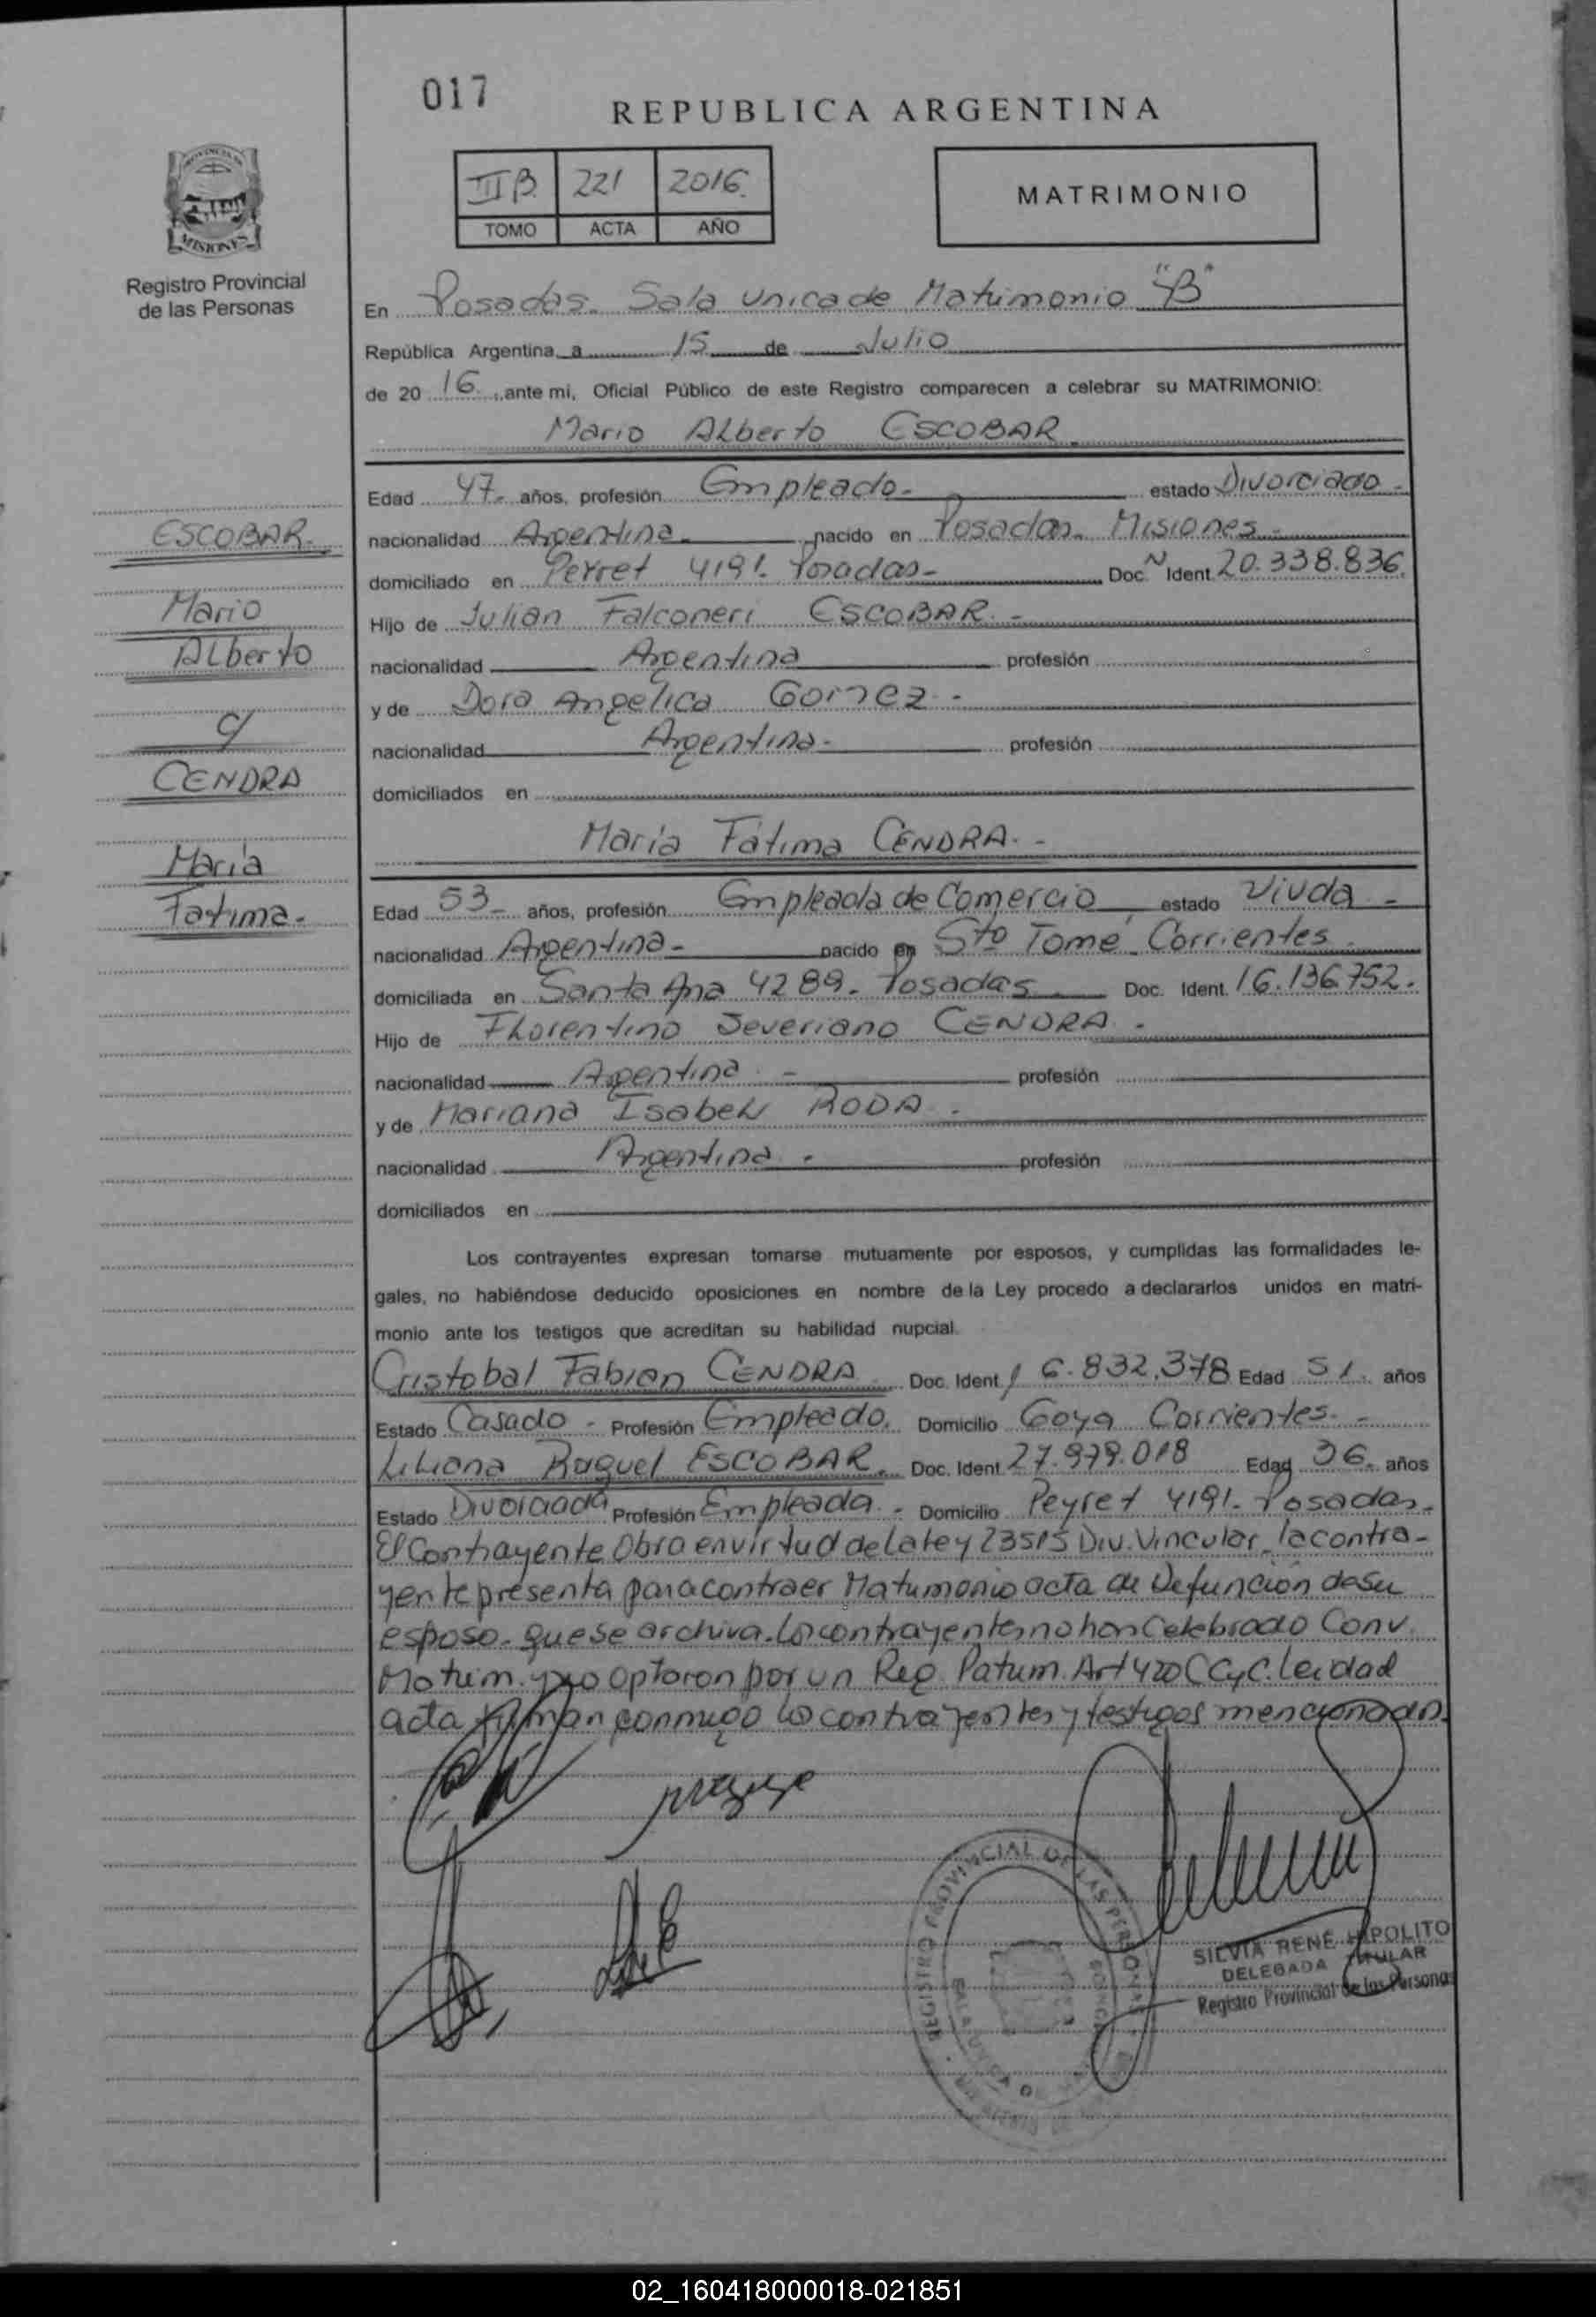 017
REPUBLICA ARGENTINA
III B. 221 2016.
TOMO ACTA AÑO
MATRIMONIO
PROVINCIA DE
MISIONES
Registro Provincial
de las Personas
En Posadas. Sala Unica de Matrimonio "B"
República Argentina a 15 de Julio
de 20 16 , ante mi, Oficial Público de este Registro comparecen a celebrar su MATRIMONIO:
Mario Alberto ESCOBAR.
Edad 47.- años, profesión Empleado.- estado Divorciado.-
nacionalidad Argentina.- nacido en Posadas. Misiones.-
domiciliado en Peyret 4191. Posadas.- Doc. N Ident. 20.338.836.
Hijo de Julian Falconeri ESCOBAR.-
nacionalidad Argentina profesión
y de Dora Angelica Gomez.-
nacionalidad Argentina.- profesión
domiciliados en
ESCOBAR.
Mario
Alberto
c/
CENDRA
María
Fatima.-
María Fátima CENDRA.-
Edad 53- años, profesión Empleada de Comercio estado Viuda -
nacionalidad Argentina.- nacido en Sto Tomé Corrientes.
domiciliada en Santa Ana 4289. Posadas Doc. Ident. 16.136.752.
Hijo de Florentino Severiano CENDRA.
nacionalidad Argentina.- profesión
y de Mariana Isabel RODA.
nacionalidad Argentina.- profesión
domiciliados en
Los contrayentes expresan tomarse mutuamente por esposos, y cumplidas las formalidades le-
gales, no habiéndose deducido oposiciones en nombre de la Ley procedo a declararlos unidos en matri-
monio ante los testigos que acreditan su habilidad nupcial.
Cristobal Fabian CENDRA Doc. Ident. 16.832.378 Edad 51. años
Estado Casado - Profesión Empleado. Domicilio Goya Corrientes.-
Liliana Raquel ESCOBAR. Doc. Ident. 27.979.018 Edad 36. años
Estado Divorciada Profesión Empleada.- Domicilio Peyret 4191. Posadas.
El Contrayente Obra en virtud de la Ley 23515 Div. Vincular, la contra-
yente presenta para contraer Matrimonio acta de Defuncion de su
esposo. que se archiva. Los contrayentes no han Celebrado Conv.
Matrim. y no optaron por un Reg. Patrim. Art 420 CCyC. Leida el
acta firman conmigo los contrayentes y testigos mencionados.
REGISTRO PROVINCIAL DE LAS PERSONAS
SILVIA RENÉ HIPOLITO
DELEGADA TITULAR
Registro Provincial de las Personas
02_160418000018-021851